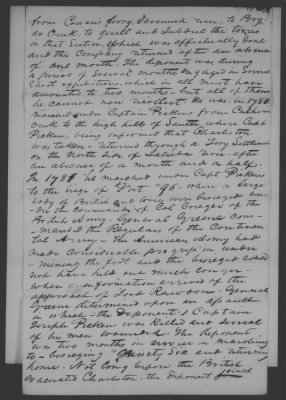 from Evans ferry, Savannah river to Big
or Creek to quell and subdue the tories
in that section, which was effectually done
and the company returned after an absence
of one month. The deponent was during
a period of several months engaged in several
short expeditions, which in all must have
amounted to two months - but all of them
he cannot now recollect. He was in 1780
marched under Captain Pickens from
Creek to the high hills of Santee where Capt
Pickens, being informed that Charleston
was taken - returned through a Tory settlement
on the North side of Saluda river after
an absence of a month and a half.
In 1781 he marched under Capt Pickens
to the siege of Fort "96" where a large
body of British and tories were besieged un-
der the command of Col Cruger of the
British army. General Greene com-
manded the Regulars of the Continen-
tal Army - The American Army had
made considerable progress in under
mining the fort and the besieged could
not have held out much longer -
when information arrived of the
approach of Lord Rawdon - General
Greene determined upon an assault
in which - the Deponent's Captain
Joseph Pickens was killed and several
of his men wounded. The deponent
was two months in service in marching
to - besieging Ninety Six and returning
home. Not long before the British
evacuated Charleston, the deponent joined